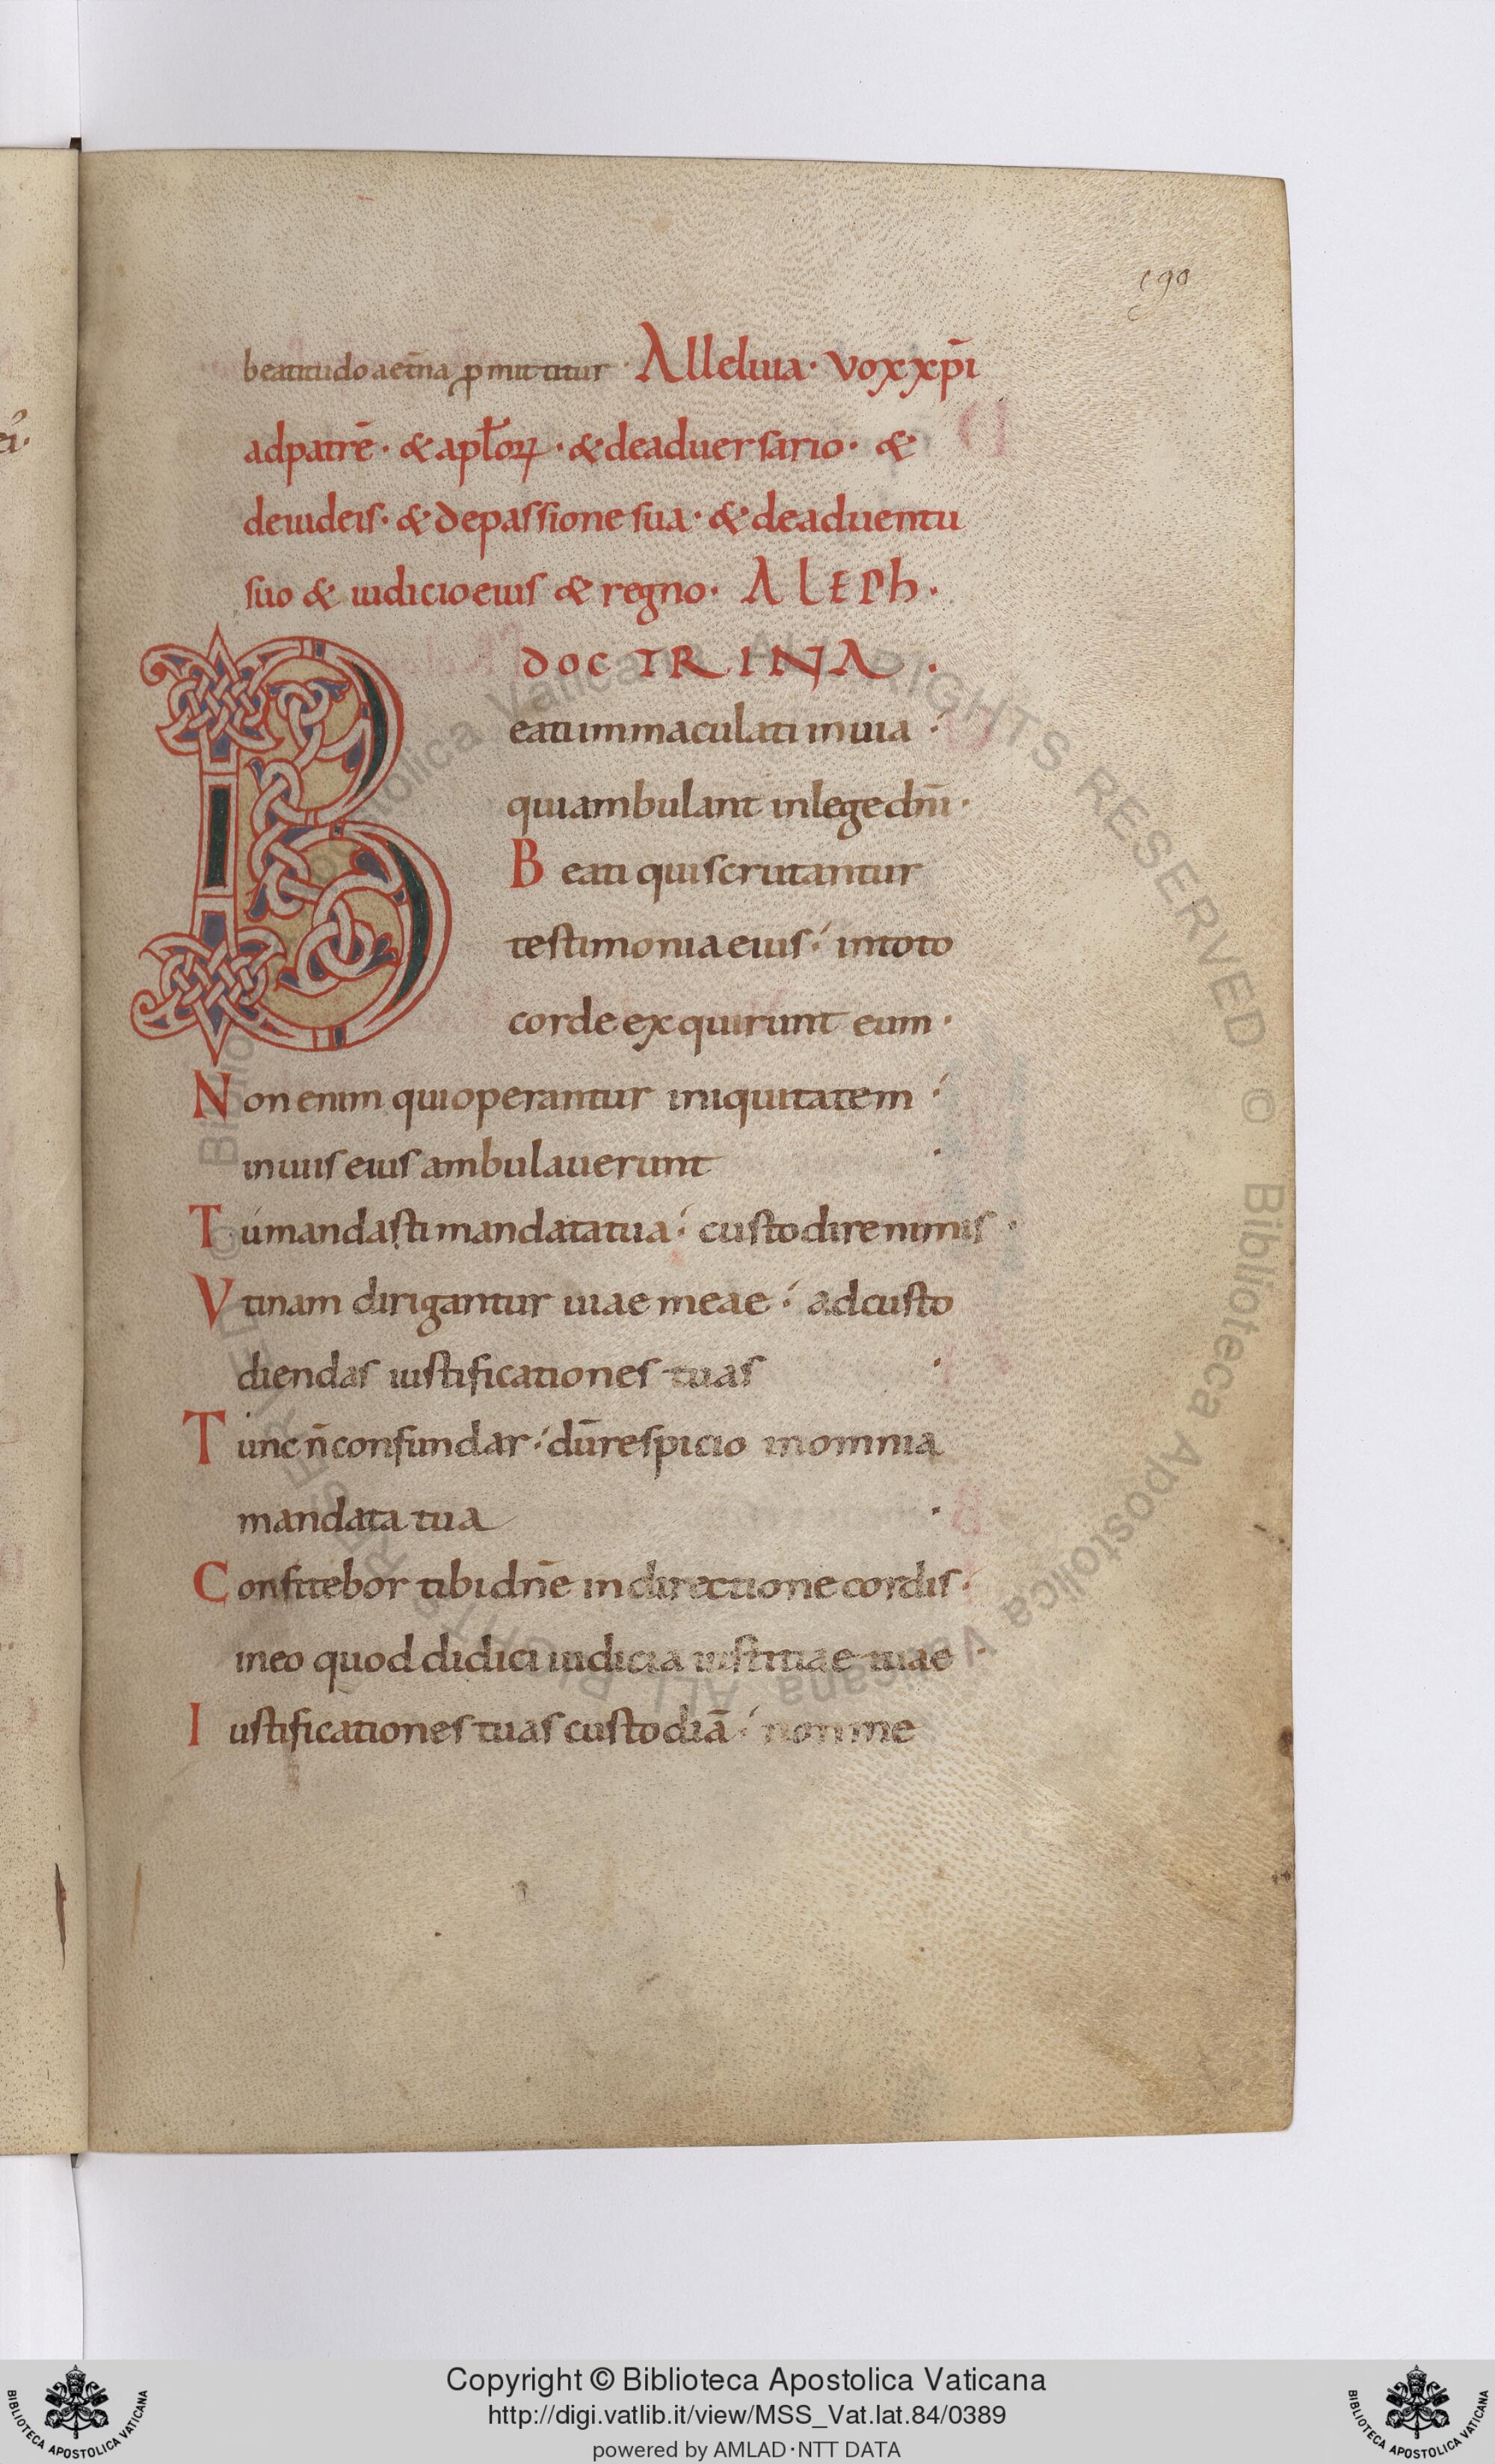 190
beatitudo aet̄na ꝑmittitur · Alleluia · vox xp̄i
ad patrē · & apl̄oꝝ · & de aduersario · &
de iudeis · & de passione sua · & de aduentu
suo & iudicio eius & regno · ALEPh ·
DOCTRINA ·
Beati immaculati in uia ·
qui ambulant in lege dn̄i ·
Beati qui scrutantur
testimonia eius · in toto
corde exquirunt eum ·
Non enim qui operantur iniquitatem ·
in uiis eius ambulauerunt ·
Tú mandasti mandata tua · custodire nimis ·
Vtinam dirigantur uiae meae · ad custo
diendas iustificationes tuas ·
Tunc n̄ confundar · dū respicio in omnia
mandata tua ·
Confitebor tibi dn̄e in directione cordis ·
meo quod didici iudicia iustitiae tuae ·
Iustificationes tuas custodiā · non me
© Biblioteca Apostolica Vaticana ALL RIGHTS RESERVED © Biblioteca Apostolica Vaticana ALL RIGHTS RESERVED
Copyright © Biblioteca Apostolica Vaticana
http://digi.vatlib.it/view/MSS_Vat.lat.84/0389
powered by AMLAD·NTT DATA
BIBLIOTECA APOSTOLICA VATICANA
BIBLIOTECA APOSTOLICA VATICANA